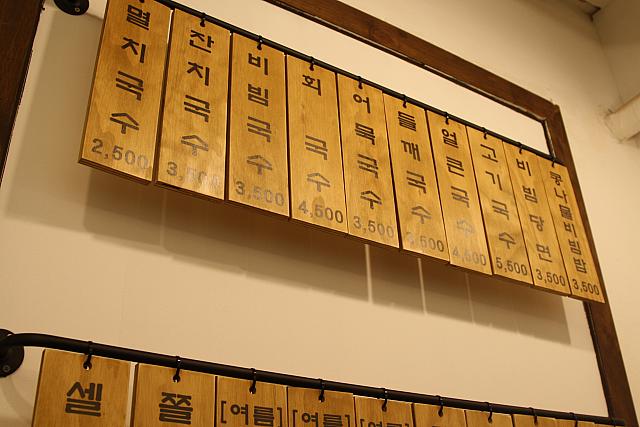 멸치국수
2,500
잔치국수
3,500
비빔국수
3,500
회국수
4,500
어묵국수
3,500
들깨국수
얼큰국수
4,500
고기국수
5,500
비빔당면
3,500
콩나물비빔밥
3,500
셀
쫄
[여름]
[여름]